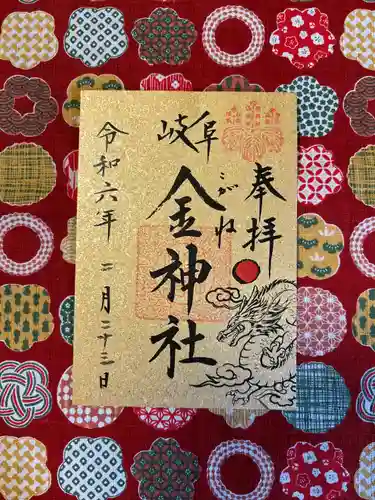 奉拝
岐阜
こがね
金神社
令和六年
二月二十三日